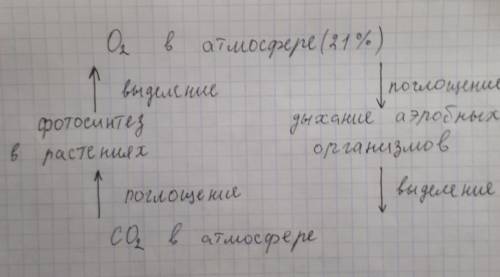 O₂ в атмосфере (21%)
выделение
поглощение
фотосинтез
в растениях
дыхание аэробных
организмов
поглощение
выделение
CO₂ в атмосфере